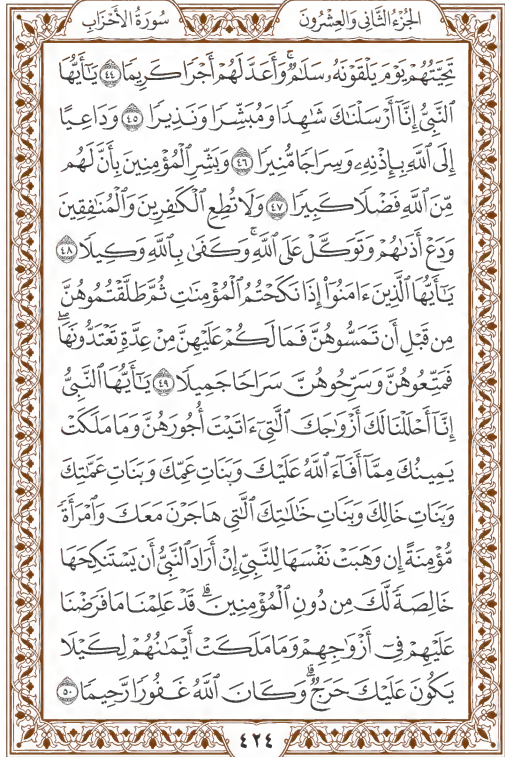 الجُزْءُ الثَّانِي وَالعِشْرُونَ
سُورَةُ الأَحْزَابِ
تَحِيَّتُهُمْ يَوْمَ يَلْقَوْنَهُۥ سَلَٰمٌۚ وَأَعَدَّ لَهُمْ أَجْرًا كَرِيمًا ٤٤ يَٰٓأَيُّهَا
ٱلنَّبِيُّ إِنَّآ أَرْسَلْنَٰكَ شَٰهِدًا وَمُبَشِّرًا وَنَذِيرًا ٤٥ وَدَاعِيًا
إِلَى ٱللَّهِ بِإِذْنِهِۦ وَسِرَاجًا مُّنِيرًا ٤٦ وَبَشِّرِ ٱلْمُؤْمِنِينَ بِأَنَّ لَهُم
مِّنَ ٱللَّهِ فَضْلًا كَبِيرًا ٤٧ وَلَا تُطِعِ ٱلْكَٰفِرِينَ وَٱلْمُنَٰفِقِينَ
وَدَعْ أَذَىٰهُمْ وَتَوَكَّلْ عَلَى ٱللَّهِۚ وَكَفَىٰ بِٱللَّهِ وَكِيلًا ٤٨
يَٰٓأَيُّهَا ٱلَّذِينَ ءَامَنُوٓا۟ إِذَا نَكَحْتُمُ ٱلْمُؤْمِنَٰتِ ثُمَّ طَلَّقْتُمُوهُنَّ
مِن قَبْلِ أَن تَمَسُّوهُنَّ فَمَا لَكُمْ عَلَيْهِنَّ مِنْ عِدَّةٍ تَعْتَدُّونَهَاۖ
فَمَتِّعُوهُنَّ وَسَرِّحُوهُنَّ سَرَاحًا جَمِيلًا ٤٩ يَٰٓأَيُّهَا ٱلنَّبِيُّ
إِنَّآ أَحْلَلْنَا لَكَ أَزْوَٰجَكَ ٱلَّٰتِيٓ ءَاتَيْتَ أُجُورَهُنَّ وَمَا مَلَكَتْ
يَمِينُكَ مِمَّآ أَفَآءَ ٱللَّهُ عَلَيْكَ وَبَنَاتِ عَمِّكَ وَبَنَاتِ عَمَّٰتِكَ
وَبَنَاتِ خَالِكَ وَبَنَاتِ خَٰلَٰتِكَ ٱلَّٰتِي هَاجَرْنَ مَعَكَ وَٱمْرَأَةً
مُّؤْمِنَةً إِن وَهَبَتْ نَفْسَهَا لِلنَّبِيِّ إِنْ أَرَادَ ٱلنَّبِيُّ أَن يَسْتَنكِحَهَا
خَالِصَةً لَّكَ مِن دُونِ ٱلْمُؤْمِنِينَۗ قَدْ عَلِمْنَا مَا فَرَضْنَا
عَلَيْهِمْ فِيٓ أَزْوَٰجِهِمْ وَمَا مَلَكَتْ أَيْمَٰنُهُمْ لِكَيْلَا
يَكُونَ عَلَيْكَ حَرَجٌۗ وَكَانَ ٱللَّهُ غَفُورًا رَّحِيمًا ٥٠
٤٢٤